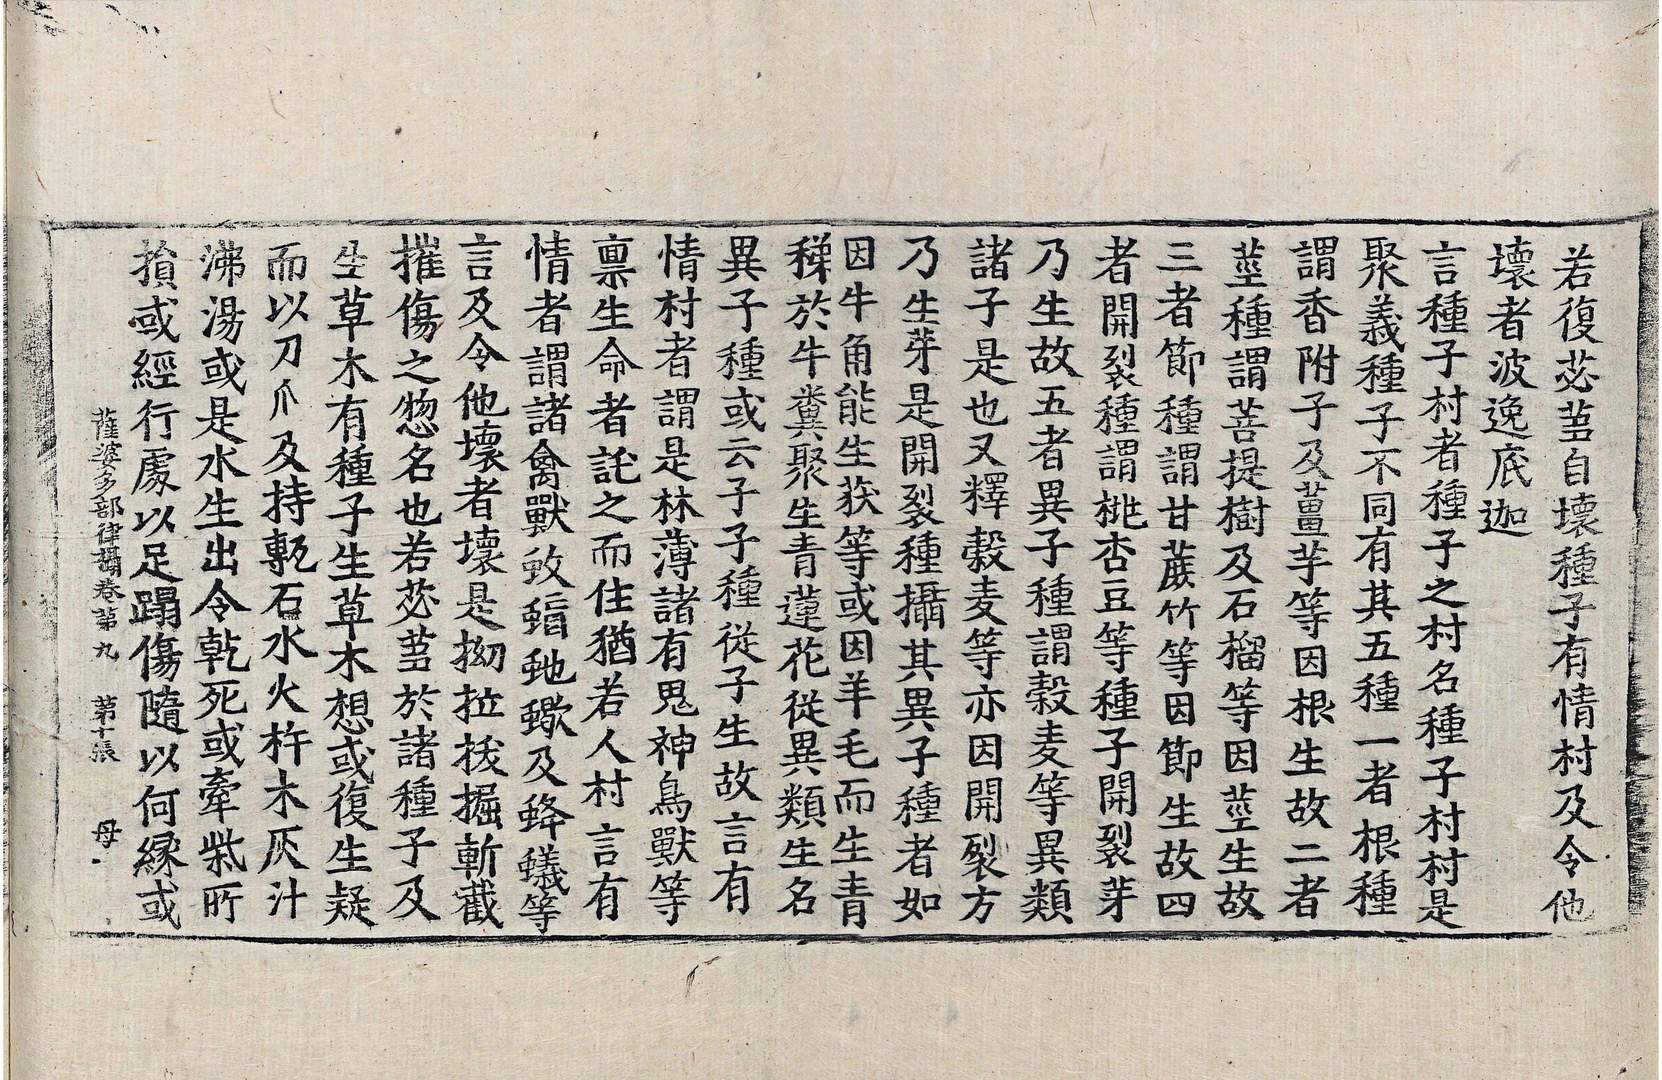 若復苾蒭自壞種子有情村及令他
壞者波逸底迦
言種子村者種子之村名種子村村是
聚義種子不同有其五種一者根種
謂香附子及薑芋等因根生故二者
莖種謂菩提樹及石榴等因莖生故
三者節種謂甘蔗竹等因節生故四
者開裂種謂桃杏豆等種子開裂芽
乃生故五者異子種謂穀麦等異類
諸子是也又釋穀麦等亦因開裂方
乃生芽是開裂種攝其異子種者如
因牛角能生荻等或因羊毛而生青
稊於牛糞聚生青蓮花從異類生名
異子種或云子子種從子生故言有
情村者謂是林薄諸有鬼神鳥獸等
禀生命者託之而住猶若人村言有
情者謂諸禽獸蚊蝐虵蠍及蜂蟻等
言及令他壞者壞是拗拉拔掘斬截
摧傷之惣名也若苾蒭於諸種子及
生草木有種子生草木想或復生疑
而以刀爪及持甎石水火杵木灰汁
沸湯或是水生出令乾死或牽柴所
損或經行處以足蹋傷隨以何緣或
薩婆多部律攝卷第九 第十張 母